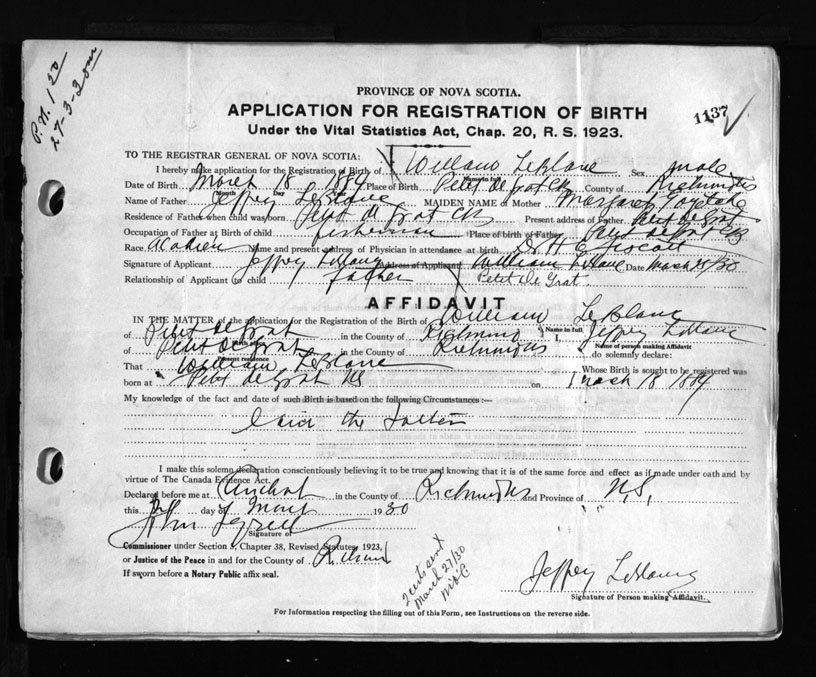 P.N. 1 20
27-3-30
PROVINCE OF NOVA SCOTIA.
APPLICATION FOR REGISTRATION OF BIRTH
1137
Under the Vital Statistics Act, Chap. 20, R. S. 1923.
TO THE REGISTRAR GENERAL OF NOVA SCOTIA:
I hereby make application for the Registration of Birth of William LeBlanc Sex male
Name in full
Date of Birth March 18 1884 Place of Birth Petit de Grat CB County of Richmond
Month Day Year
Name of Father Jeffrey LeBlanc MAIDEN NAME of Mother Margaret
Residence of Father when child was born Petit de Grat CB Present address of Father Petit de Grat
Occupation of Father at Birth of child fisherman Place of birth of Father Petit de Grat CB
Race Acadien Name and present address of Physician in attendance at birth Dr H E
Signature of Applicant Jeffrey LeBlanc Address of Applicant William LeBlanc Date March 25/30
Relationship of Applicant to child father Petit De Grat.
AFFIDAVIT
IN THE MATTER of the application for the Registration of the Birth of William LeBlanc
Name in full
of Petit de Grat in the County of Richmond I Jeffrey LeBlanc
Birth place Name of person making Affidavit
of Petit de Grat in the County of Richmond do solemnly declare:
Present residence
That William LeBlanc Whose Birth is sought to be registered was
born at Petit de Grat NS on March 18 1884
My knowledge of the fact and date of such Birth is based on the following Circumstances:—
I am the father
I make this solemn declaration conscientiously believing it to be true and knowing that it is of the same force and effect as if made under oath and by
virtue of The Canada Evidence Act.
Declared before me at Arichat in the County of Richmond and Province of N.S.
this day of March 1930
John
Signature of
Commissioner under Section 3, Chapter 38, Revised Statutes, 1923,
or Justice of the Peace in and for the County of Richmond
If sworn before a Notary Public affix seal.
2 certs sent
March 27/30
Jeffrey LeBlanc
Signature of Person making Affidavit.
For Information respecting the filling out of this Form, see Instructions on the reverse side.